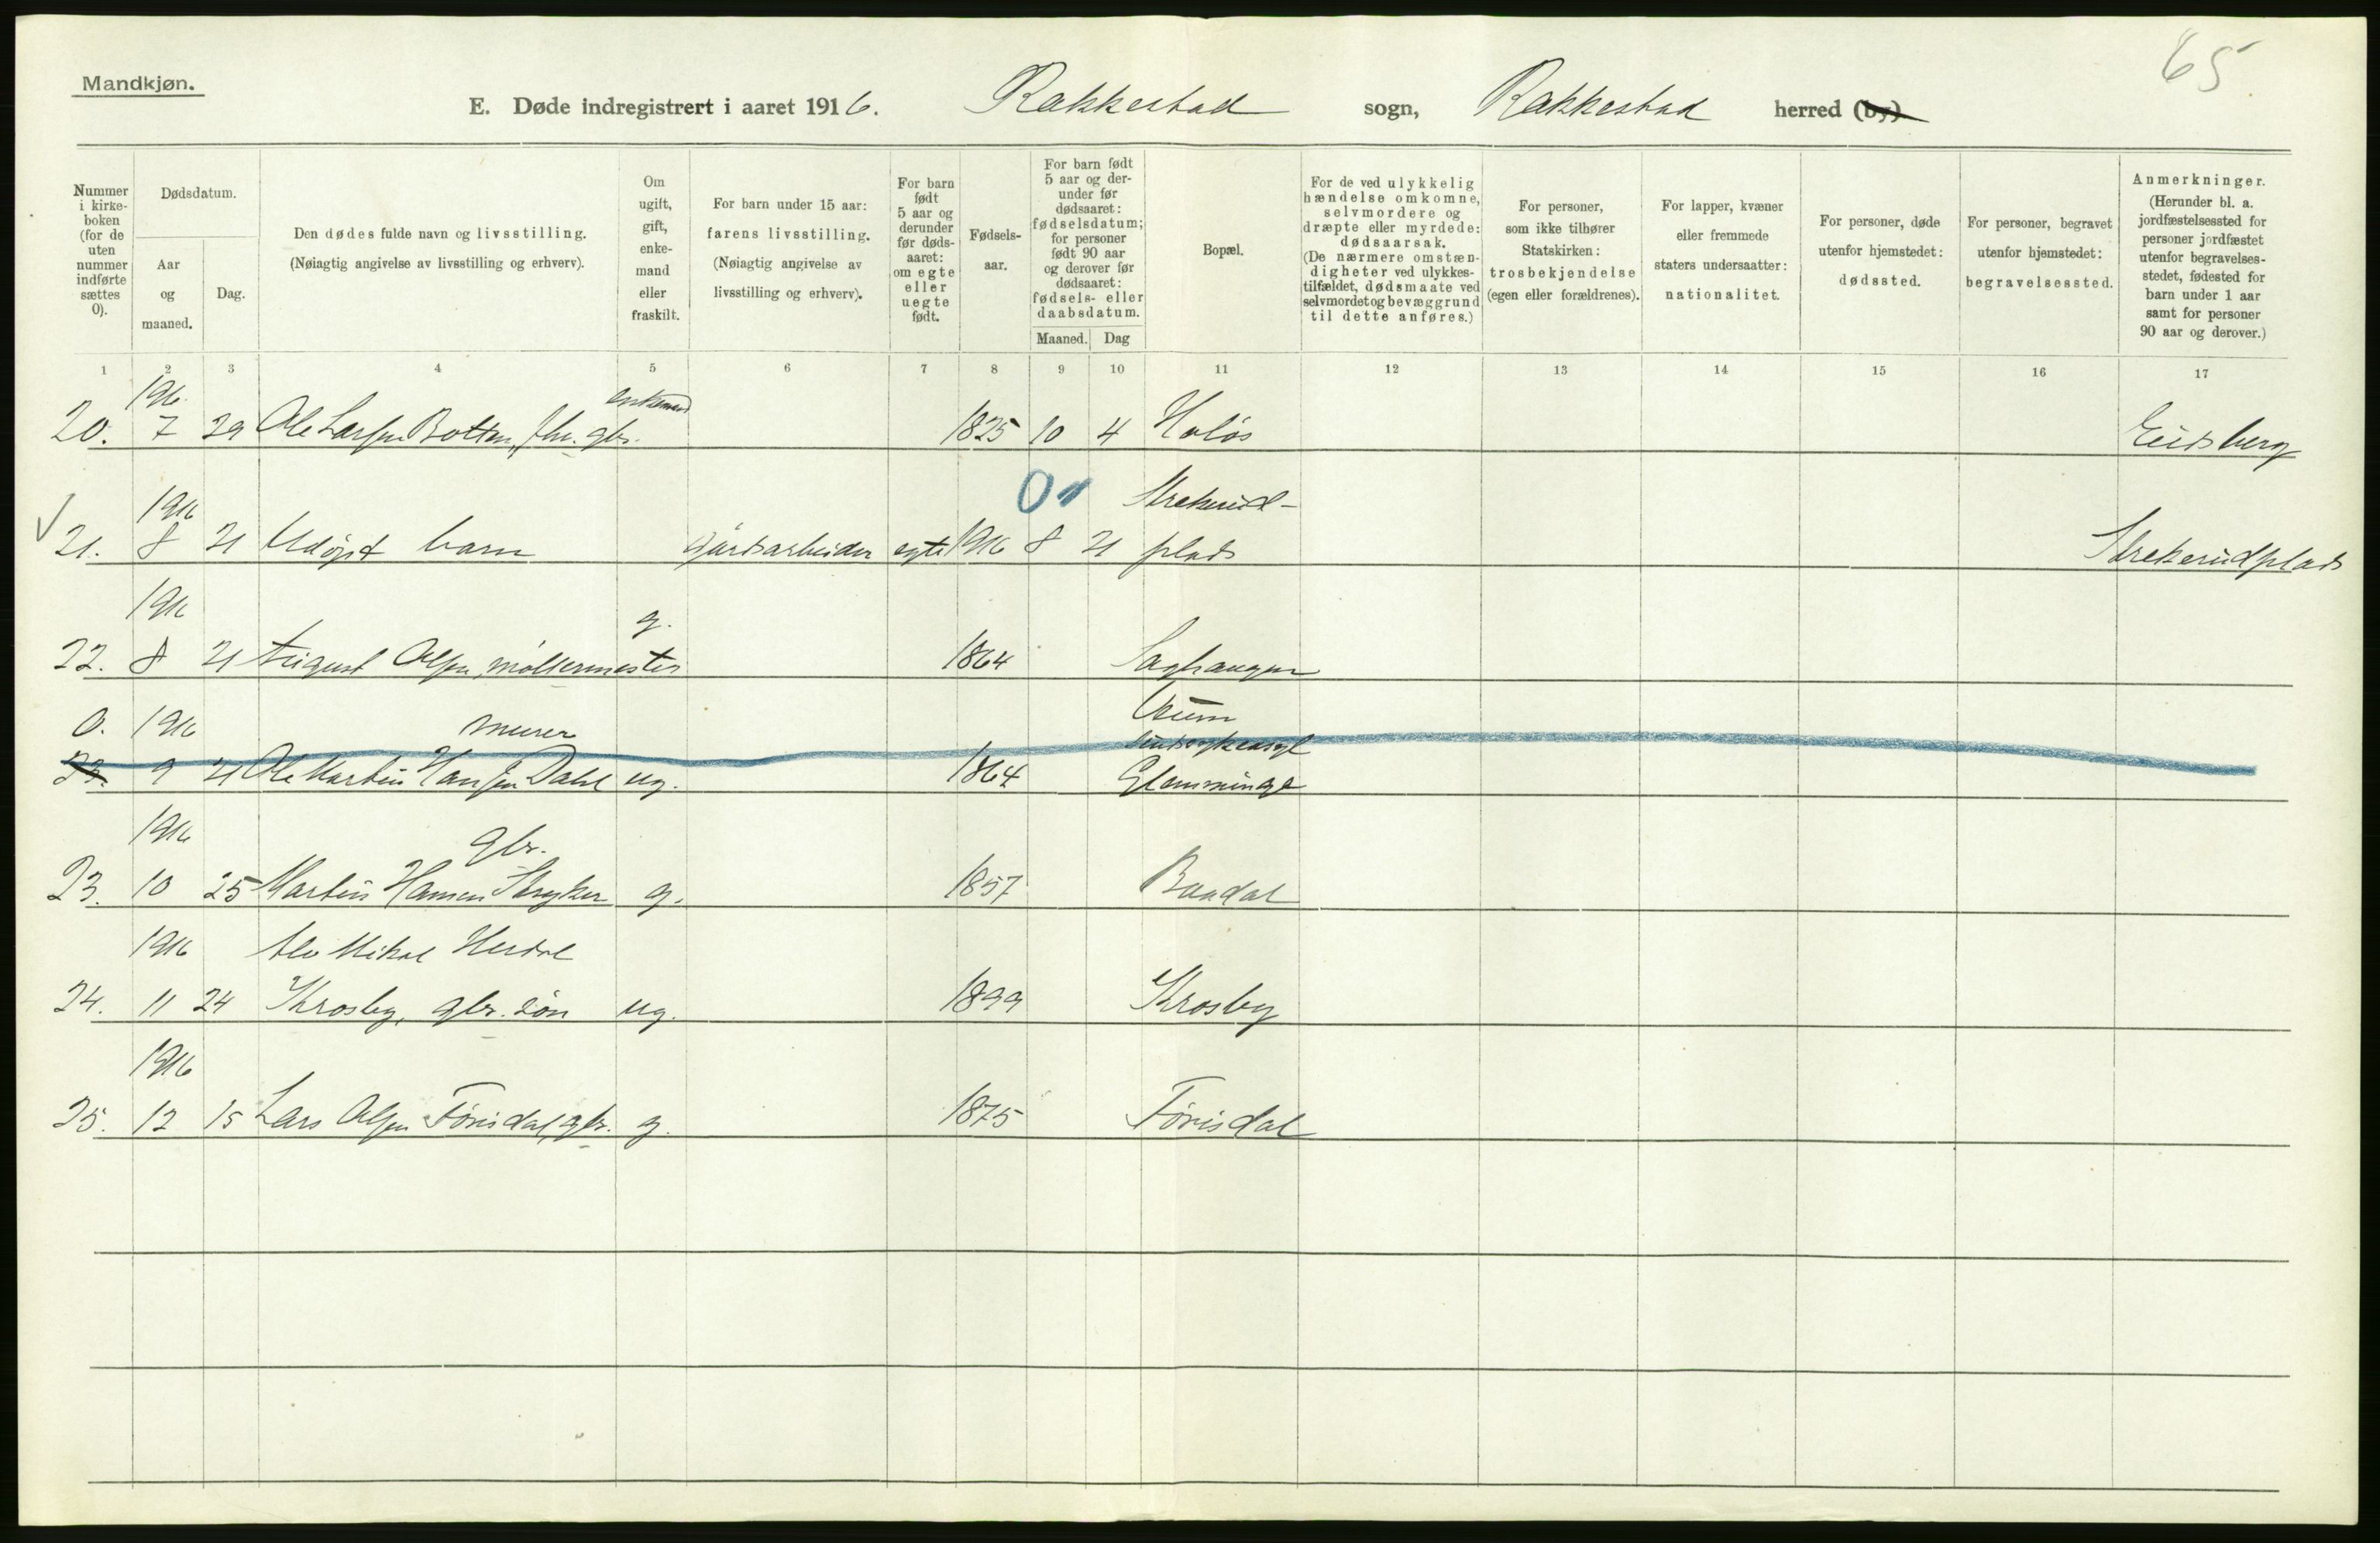 65
Mandkjøn.
E. Døde indregistrert i aaret 1916. Rakkestad sogn, Rakkestad herred (by)
Nummer i kirke-boken (for de uten nummer indførte sættes 0).
Dødsdatum.
Aar og maaned.
Dag.
Den dødes fulde navn og livsstilling.
(Nøiagtig angivelse av livsstilling og erhverv).
Om ugift, gift, enke-mand eller fraskilt.
For barn under 15 aar: farens livsstilling.
(Nøiagtig angivelse av livsstilling og erhverv).
For barn født 5 aar og derunder før døds-aaret: om egte eller uegte født.
Fødsels-aar.
For barn født 5 aar og der-under før dødsaaret: fødselsdatum; for personer født 90 aar og derover før dødsaaret: fødsels- eller daabsdatum.
Maaned. Dag
Bopæl.
For de ved ulykkelig hændelse omkomne, selvmordere og dræpte eller myrdede: dødsaarsak.
(De nærmere omstæn-digheter ved ulykkes-tilfældet, dødsmaate ved selvmordet og bevæggrund til dette anføres.)
For personer, som ikke tilhører Statskirken: trosbekjendelse (egen eller forældrenes).
For lapper, kvæner eller fremmede staters undersaatter: nationalitet.
For personer, døde utenfor hjemstedet: dødssted.
For personer, begravet utenfor hjemstedet: begravelsessted.
Anmerkninger.
(Herunder bl. a. jordfæstelsessted for personer jordfæstet utenfor begravelses-stedet, fødested for barn under 1 aar samt for personer 90 aar og derover.)
1 2 3 4 5 6 7 8 9 10 11 12 13 14 15 16 17
1916 enkemand
20. 7 29 Ole Larsen Botten, fhv. gbr. 1825 10 4 Holøs Eidsberg
1916 Strekerud-
21. 8 21 Udøpt barn gårdsarbeider egte 1916 8 21 plads Strekerudplads
1916 g.
22. 8 21 August Olsen, møllermester 1864 Saghaugen
0. 1916 murer
23. 9 21 Ole Martin Hansen Dahl ug. 1864 Glemminge
1916 gbr.
23. 10 25 Martin Hansen g. 1857 Baadal
1916 Mikal
24. 11 24 Krosby, gbr. søn ug. 1899 Krosby
1916
25. 12 15 Lars Olsen Förisdal, gbr. g. 1875 Förisdal